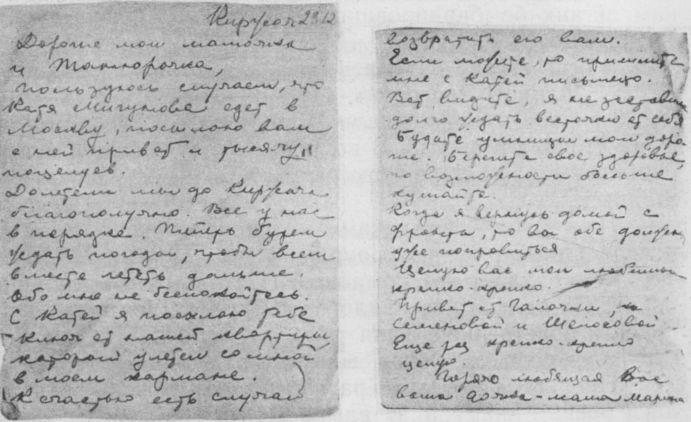 Киржач 29.12
Дорогие мои мамочка
и Танюрочка,
пользуюсь случаем, что
Катя Мигунова едет в
Москву, посылаю вам
с ней привет и тысячу
поцелуев.
Долетели мы до Киржача
благополучно. Все у нас
в порядке. Теперь будем
ждать погоды, чтобы всем
вместе лететь дальше.
Обо мне не беспокойтесь.
С Катей я посылаю тебе
ключ от нашей квартиры
который улетел со мной
в моем кармане.
К счастью есть случай
возвратить его вам.
Если можете, то пришлите
мне с Катей письмецо.
Вот видите, я не заставила
долго ждать весточки от себя
Будьте умницы мои доро
гие. Берегите свое здоровье,
по возможности больше
кушайте.
Когда я вернусь домой с
фронта, то вы обе должны
уже поправиться
Целую вас мои любимые
крепко-крепко.
Привет от Галочки,
Семеновой и
Еще раз крепко-крепко
целую.
Горячо любящая Вас
ваша дочка-мама Марина